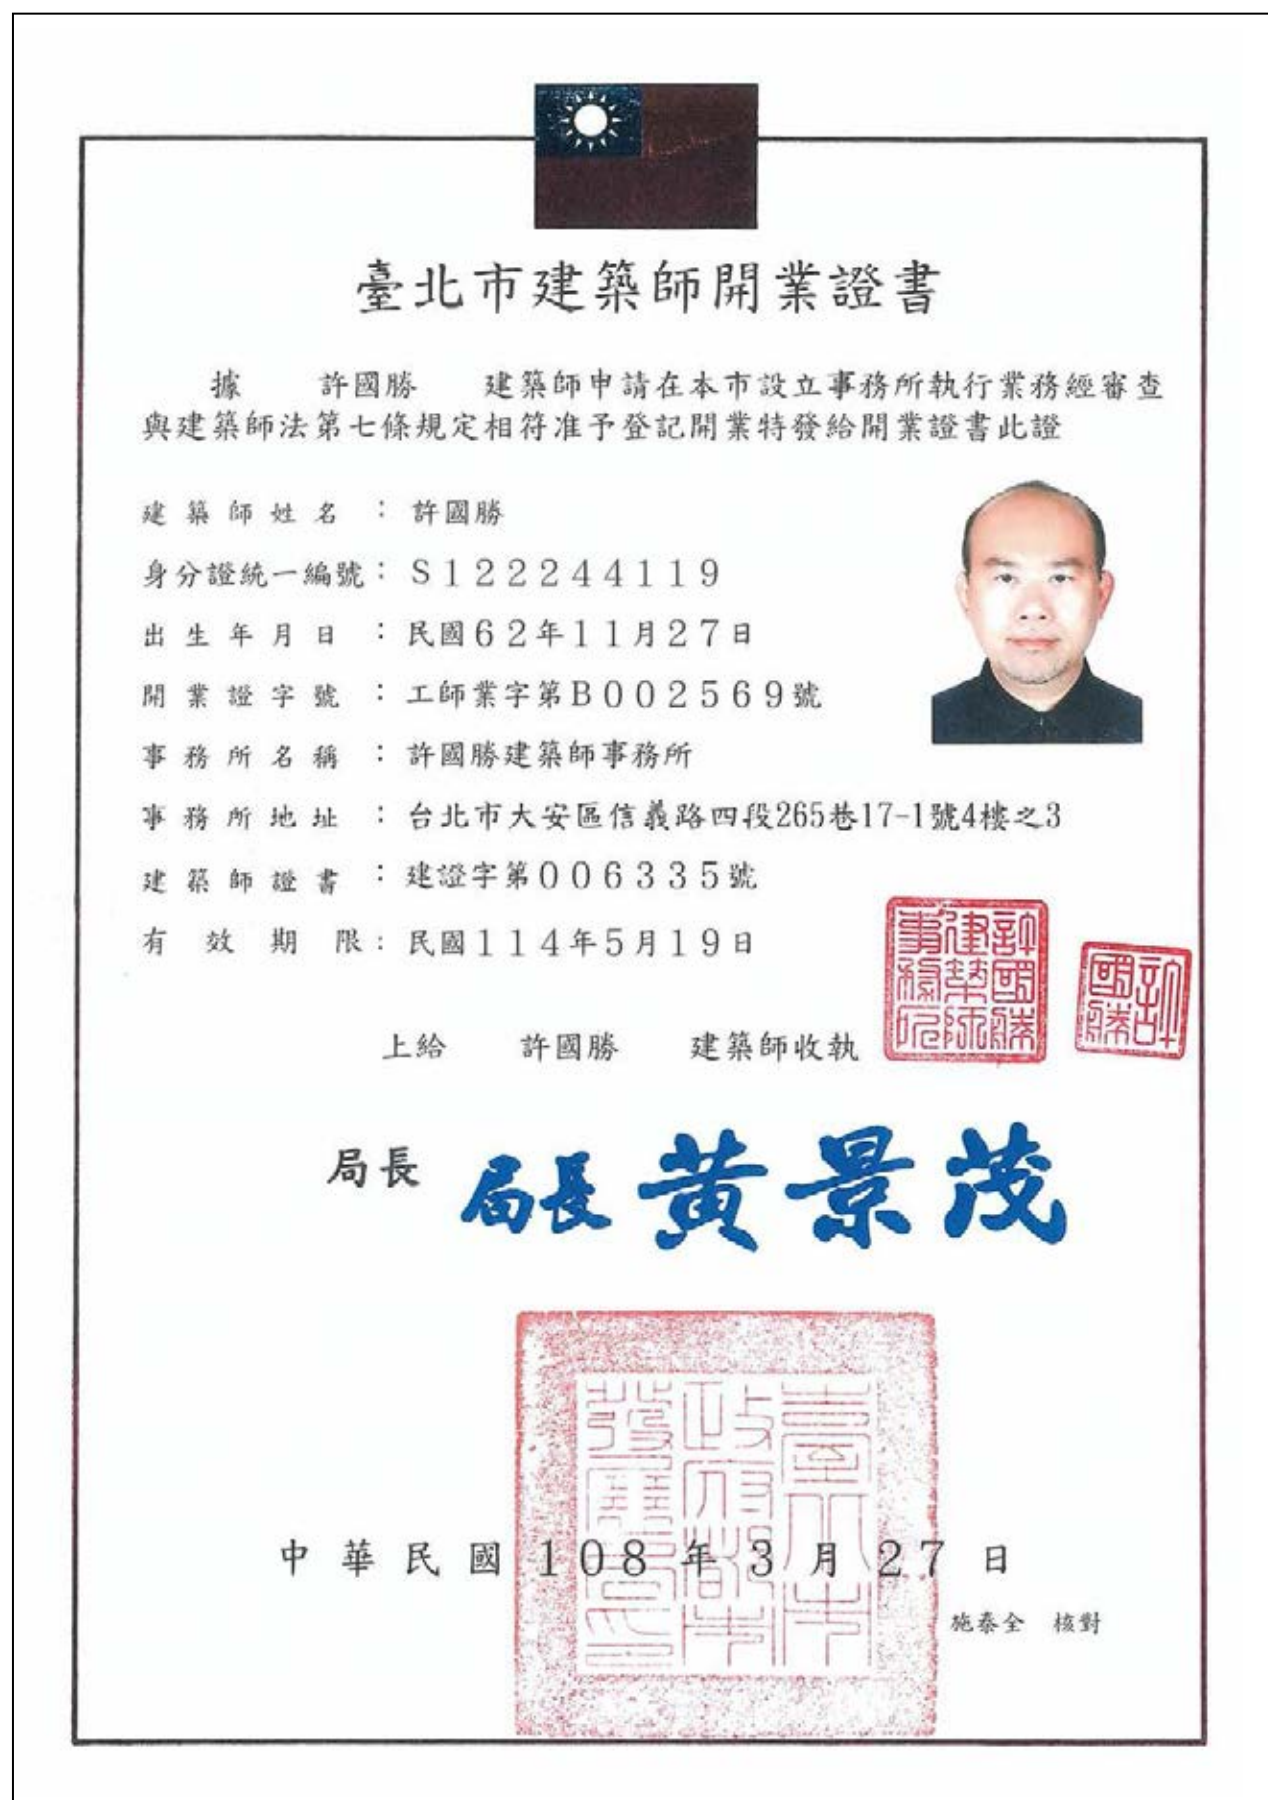 臺北市建築師開業證書
據 許國勝 建築師申請在本市設立事務所執行業務經審查
與建築師法第七條規定相符准予登記開業特發給開業證書此證
建築師姓名：許國勝
身分證統一編號：S122244119
出生年月日：民國62年11月27日
開業證字號：工師業字第B002569號
事務所名稱：許國勝建築師事務所
事務所地址：台北市大安區信義路四段265巷17-1號4樓之3
建築師證書：建證字第006335號
有效期限：民國114年5月19日
許國勝建築師事務所
許國勝
上給 許國勝 建築師收執
局長 局長黃景茂
臺北市政府都市發展局印
中華民國108年3月27日
施泰全 核對